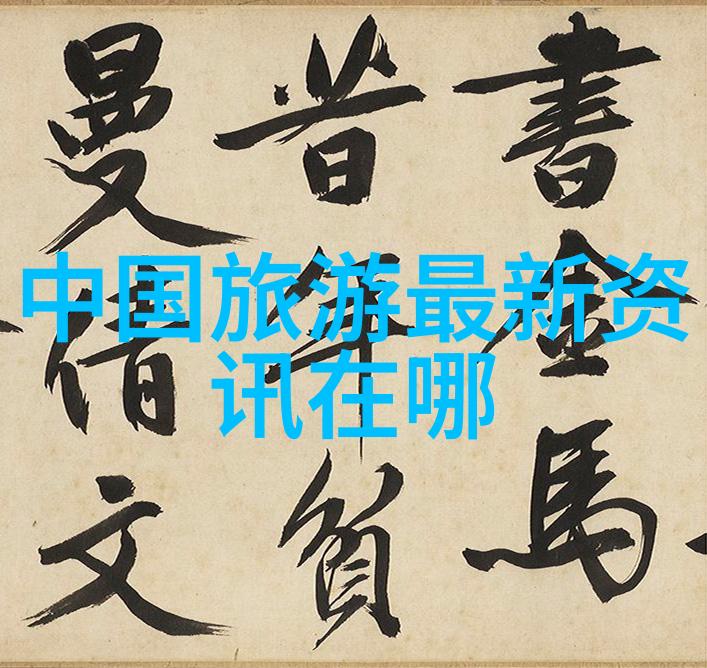 中国旅游最新资
讯在哪
書金馬
昔年貧
曼倩文